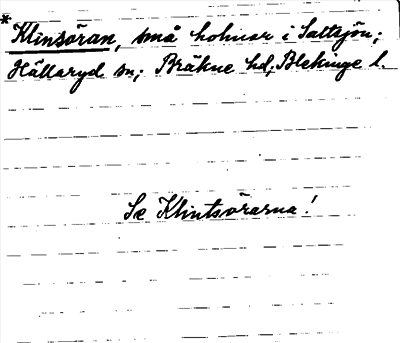 *Klinsöran, små holmar i Saltsjön;
Hällaryd sn; Bräkne hd; Blekinge l.
Se Klintsörarna!